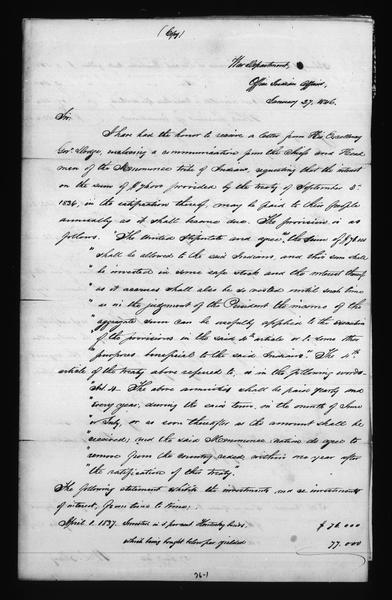 (Copy)
War Department,
Office Indian Affairs,
January 27, 1846.
Sir,
I have had the honor to receive a letter from His Excellency
Gov. Dodge, enclosing a communication from the Chiefs and Head
men of the Menomonee tribe of Indians, requesting that the interest
on the sum of $76,000 provided by the treaty of September 3d
1836, in the ratification thereof, may be paid to their people
annually as it shall become due. The provision is as
follows. "The United States stipulate and agree, the sum of $76,000
"shall be allowed to the said Indians, and this sum shall
"be invested in some safe stock and the interest thereof
"as it accrues shall also be so vested until such time
"as in the judgment of the President the income of the
"aggregate sum can be usefully applied to the execution
"of the provisions in the said 4th article or to some other
"purposes beneficial to the said Indians." The 4th
article of the treaty above referred to, is in the following words-
"Art. 4. The above annuities shall be paid yearly and
"every year, during the said term, in the month of June
"or July, or as soon thereafter as the amount shall be
"received; and the said Menomonee nation do agree to
"remove from the country ceded, within one year after
"the ratification of this treaty."
The following statement exhibits the investments and re-investments
of interest, from time to time;
April 1. 1837. Invested in 5 per cent Kentucky bonds, $76.000
which being bought below par yielded 77.000
76-1